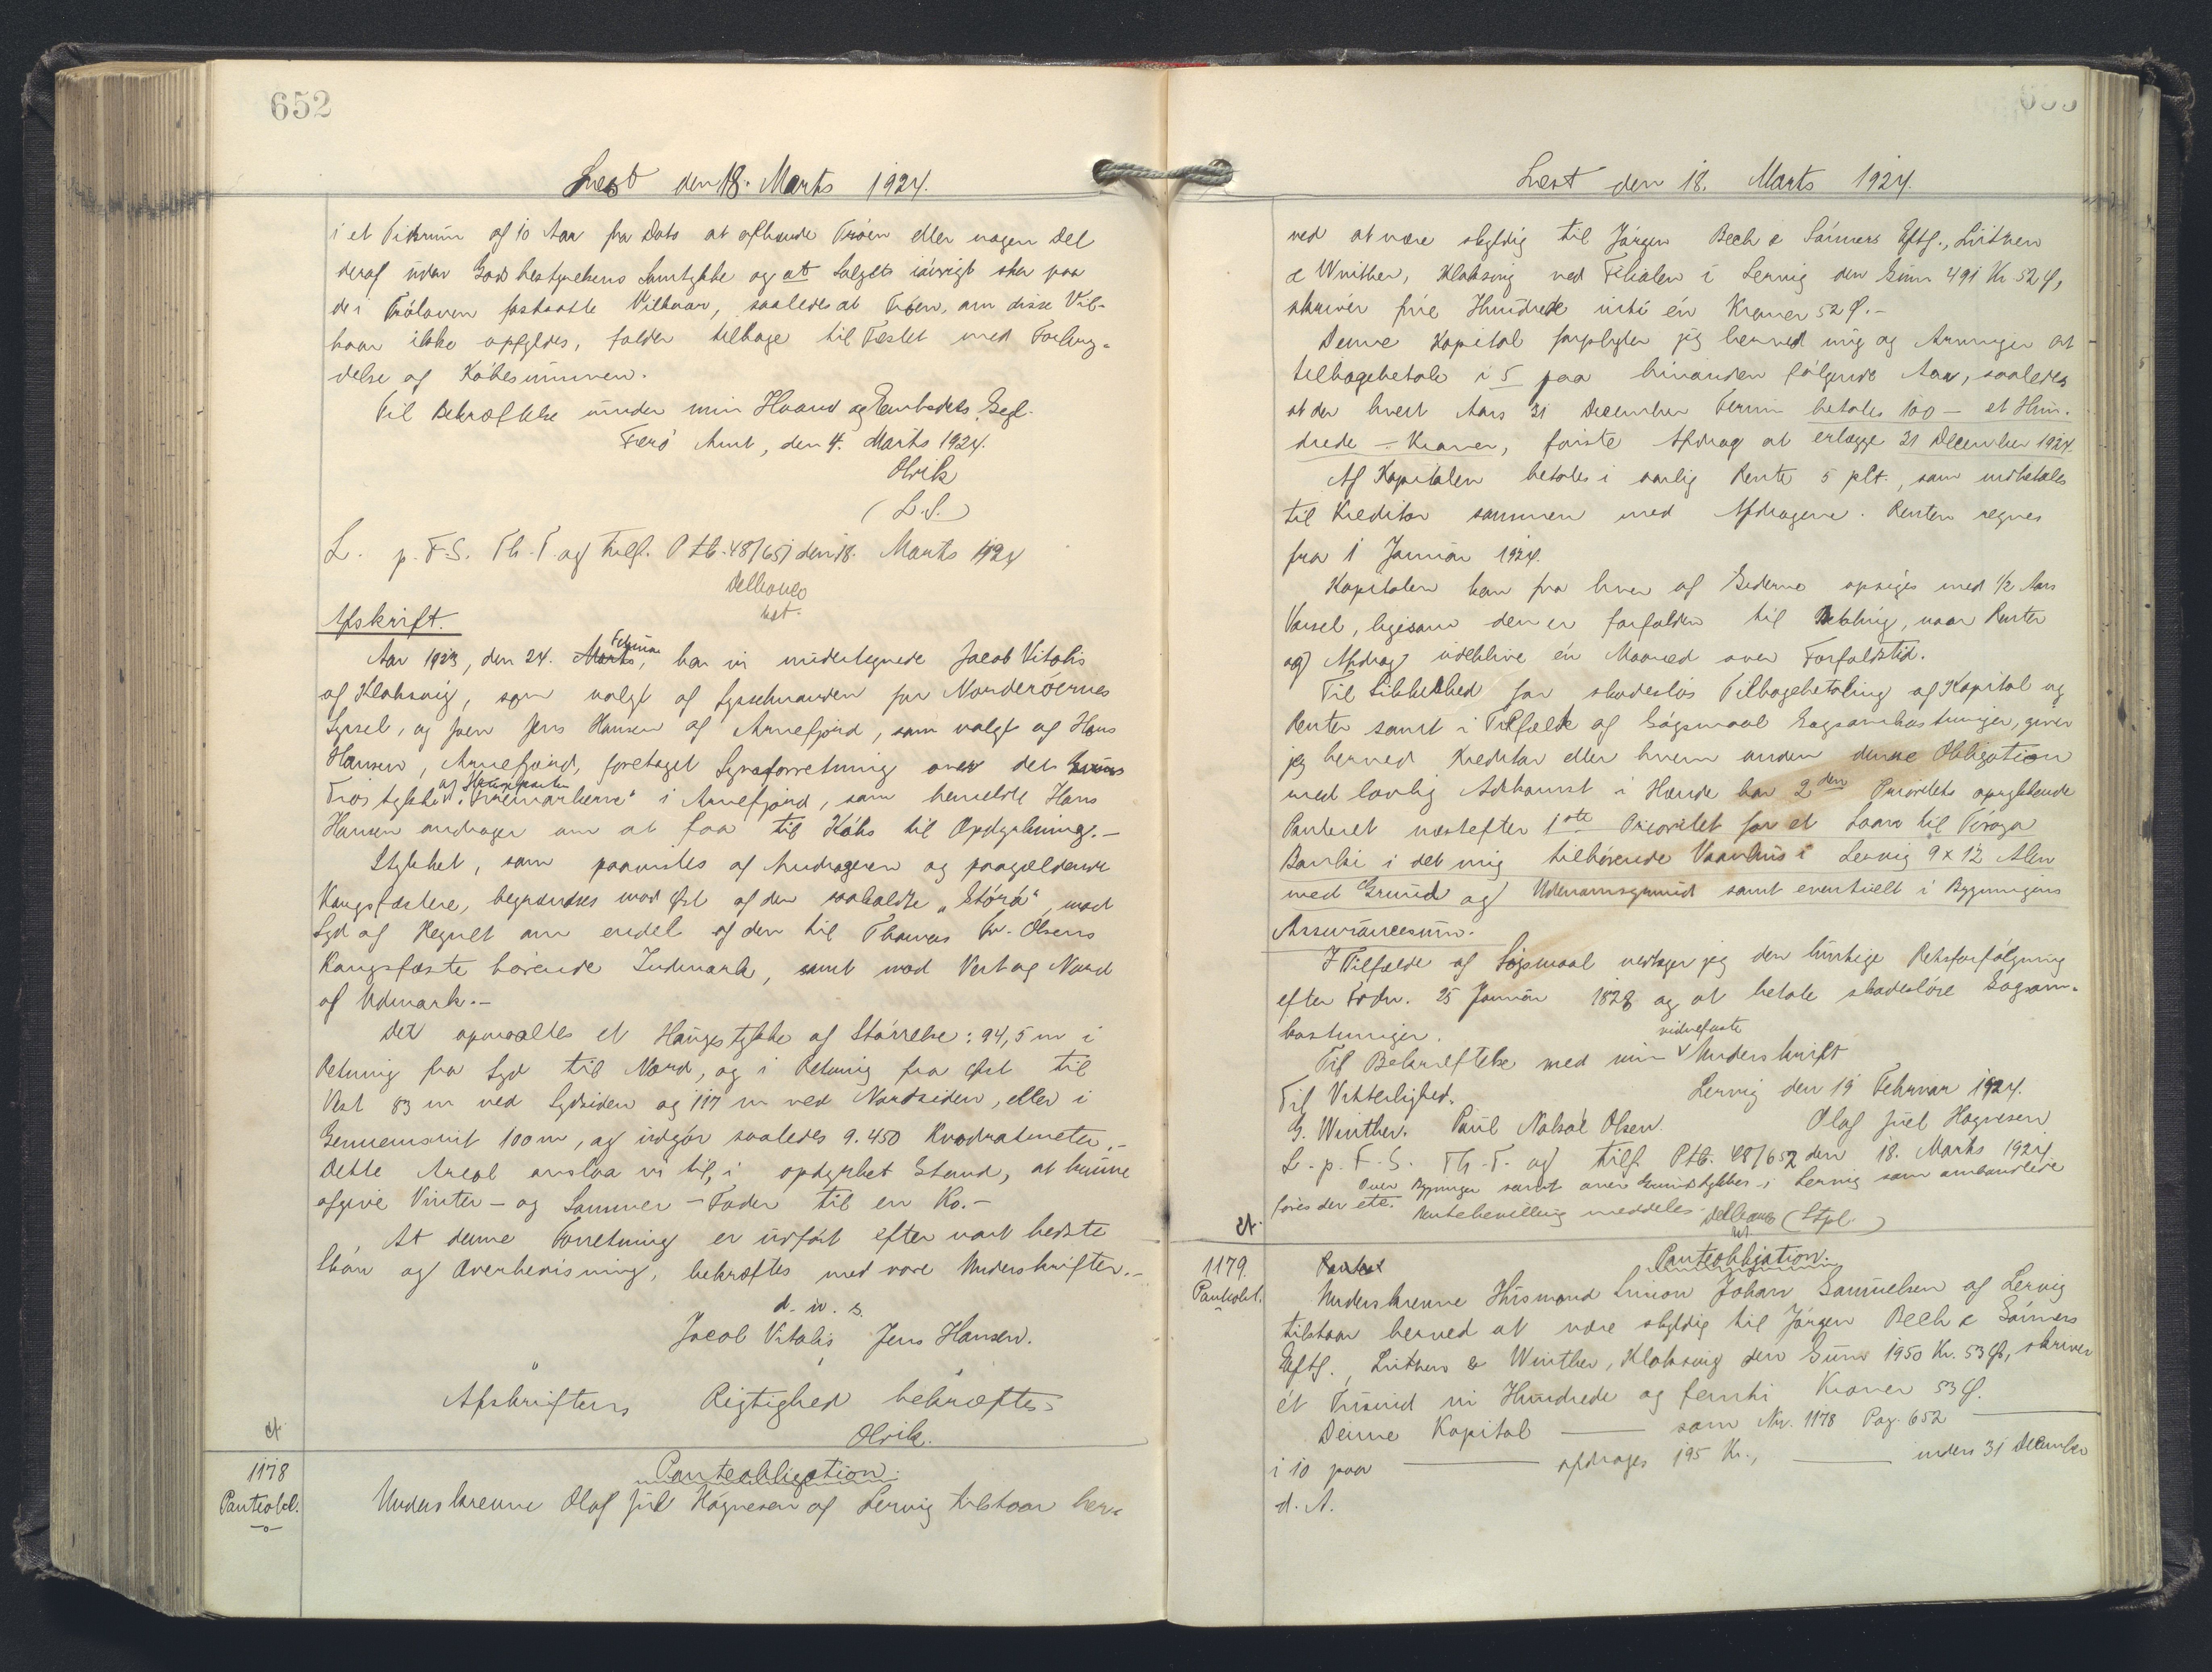 652
Læst den 18. Marts 1924.
i et Tidsrum af 10 Aar fra Dato at afhænde Trøen eller nogen Del
deraf uden Godsbestyrelsens Samtykke og at Salget iøvrigt sker paa
de i Trøloven fastsatte Vilkaar, saaledes at Trøen, om disse Vil-
kaar ikke opfyldes, falder tilbage til Fæstet med Forbry-
delse af Købesummen.
Til Bekræftelse under min Haand og Embedets Segl.
Færø Amt, den 4. Marts 1924.
Olrik
(L.S.)
L. p. F.S. Th. T. og tilf. Ptb. 48/651 den 18. Marts 1924
Afskrift.
Aar 1923, den 24. Marts, Februar har vi undertegnede Jacob Vitalis
af Klaksvig, som valgt af Sysselmanden for Norderøernes
Syssel, og Jens Hansen af Arnefjord, som valgt af Hans
Hansen, Arnefjord, foretaget Synsforretning over det
Trøstykke af Haugeparten i Arnefjord, som bemeldte Hans
Hansen andrager om at faa til Købs til Opdyrkning.-
Stykket, som paavistes af Andrageren og paagældende
Kongsfæstere, begrændses mod Øst af den saakaldte „Stórá“, mod
Syd af Hegnet om endel af den til Thomas Fr. Olsens
Kongsfæste hørende Indmark, samt mod Vest og Nord
af Udmark.-
Det opmaaltes et Haugestykke af Størrelse: 94,5 m i
Retning fra Syd til Nord, og i Retning fra Øst til
Vest 83 m ved Sydsiden og 117 m ved Nordsiden, eller i
Gennemsnit 100 m, og udgør saaledes 9.450 Kvadratmeter.-
Dette Areal anslaa vi til, i opdyrket Stand, at kunne
afgive Vinter- og Sommer-Foder til en Ko.-
At denne Forretning er udført efter vort bedste
Skøn og Overbevisning, bekræftes med vore Underskrifter.-
d. u. s.
Jacob Vitalis Jens Hansen.
Afskriftens Rigtighed bekræftes
Olrik.
1178
Panteobl.
Panteobligation.
Underskrevne Olaf Juel Høgnesen af Lervig tilstaar her-
Læst den 18. Marts 1924.
ved at være skyldig til Jørgen Bech & Sønners Eftf., Lüthen
& Winther, Klaksvig ved Filialen i Lervig den Sum 491 Kr. 52 Ø,
skriver fire Hundrede niti én Kroner 52 Ø.-
Denne Kapital forpligter jeg herved mig og Arvinger at
tilbagebetale i 5 paa hinanden følgende Aar, saaledes
at der hvert Aars 31 December Termin betales 100 - et Hun-
drede - Kroner, første Afdrag at erlægge 31 December 1924.
Af Kapitalen betales i aarlig Rente 5 pCt., som indbetales
til Kreditor sammen med Afdragene. Renten regnes
fra 1 Januar 1924.
Kapitalen kan fra hver af Siderne opsiges med 1/2 Aars
Varsel, ligesom den er forfalden til Betaling, naar Renter
og Afdrag udeblive én Maaned over Forfaldstid.
Til Sikkerhed for skadesløs Tilbagebetaling af Kapital og
Renter samt i Tilfælde af Søgsmaal Sagsomkostninger, giver
jeg herved Kreditor eller hvem anden denne Obligation
med lovlig Adkomst i Hænde har 2den Prioritets oprykkende
Panteret næstefter 1ste Prioritet for et Laan til Føroya
Banki i det mig tilhørende Vaanhus i Lervig 9 x 12 Alen
med Grund og Udenomsgrund samt eventuelt i Bygningens
Assurancesum.
I Tilfælde af Søgsmaal vedtager jeg den hurtige Retsforfølgning
efter Frdn. 25 Januar 1828 og at betale skadesløse Sagsom-
kostninger.
Til Bekræftelse med min vidnefaste Underskrift
Til Vitterlighed. Lervig den 19 Februar 1924.
G. Winther. Paul Nolsøe Olsen. Olaf Juel Høgnesen
L. p. F. S. Th. T. og tilf. Ptb. 48/652 den 18. Marts 1924
Over Bygninger samt over Grundstykket i Lervig som ombandlede
føres der etc.
meddeles (Stpl.)
1179.
Panteobl.
Panteobligation.
Underskrevne Husmand Simon Johan Samuelsen af Lervig
tilstaar herved at være skyldig til Jørgen Bech & Sønners
Eftf., Lüthen & Winther, Klaksvig den Sum 1950 Kr. 53 Ø, skriver
ét Tusind ni Hundrede og femti Kroner 53 Ø.
Denne Kapital — som Nr. 1178 Pag. 652 —
i 10 paa — afdrages 195 Kr., — inders 31 December
d. A.